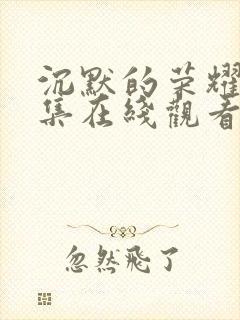 沉默的荣耀
集在线觀看
忽然飛了